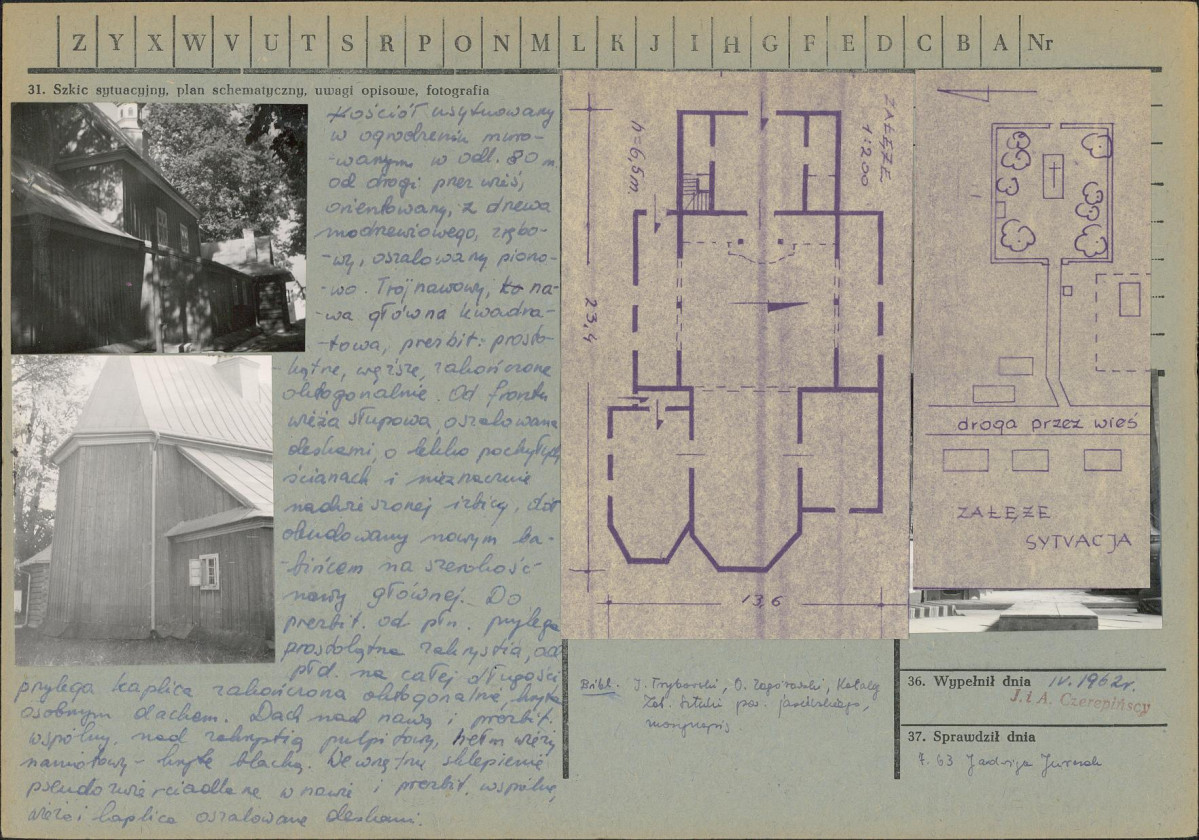 Z Y X W V U T S R P O N M L K J I H G F E D C B A Nr
31. Szkic sytuacyjny, plan schematyczny, uwagi opisowe, fotografia
Kościół usytuowany
w ogrodzeniu muro-
-wanym w odl. 80 m
od drogi przez wieś,
orientowany, z drewa
modrzewiowego, zrębo-
-wy, oszalowany piono-
-wo. Trójnawowy, na-
-wa główna kwadra-
-towa, prezbit: prosto-
kątne, węższe, zakończone
oktogonalnie. Od frontu
wieża słupowa oszalowana
deskami, o lekko pochyłych
ścianach i nieznacznie
nadwieszonej izbicy, dół
obudowany nowym ba-
-bińcem na szerokość
nawy głównej. Do
prezbit. od płn. przylega
prostokątna zakrystia, od
płd. na całej długości
przylega kaplica zakończona oktogonalnie, kryta
osobnym dachem. Dach nad nawą i prezbit.
wspólny, nad zakrystią pulpitowy, hełm wieży
namiotowy - kryte blachą. Wewnątrz sklepienie
pseudozwierciadlane w nawie i prezbit. wspólne,
wieża i kaplica oszalowane deskami.
ZAŁĘŻE
1:200
h=6,5m.
23,4
13,6
droga przez wieś
ZAŁĘŻE
SYTUACJA
Bibl. J. Tryborski, O. Zagórowski, Katalog
Zab. Sztuki pow. jasielskiego,
maszynopis
36. Wypełnił dnia IV. 1962r.
J. i A. Czerepińscy
37. Sprawdził dnia
7. 63 Jadwiga